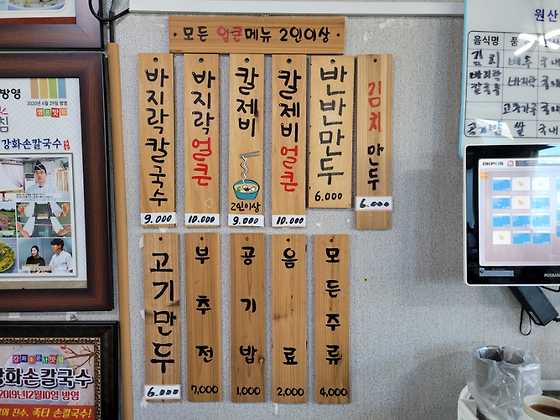 모든 얼큰메뉴 2인이상
바지락칼국수
9,000
바지락얼큰
10,000
칼제비
2인이상
9,000
칼제비얼큰
10,000
반반만두
6,000
김치만두
6,000
고기만두
6,000
부추전
7,000
공기밥
1,000
음료
2,000
모든주류
4,000
방영
2020년 4월 29일 방영
강화손칼국수
강화손칼국수
2019년12월10일 방영
원산
음식명
김치
배추
국내
바지락
칼국수
바지락
국내
고춧가루
국내
공기밥
쌀
국내
OKPOS